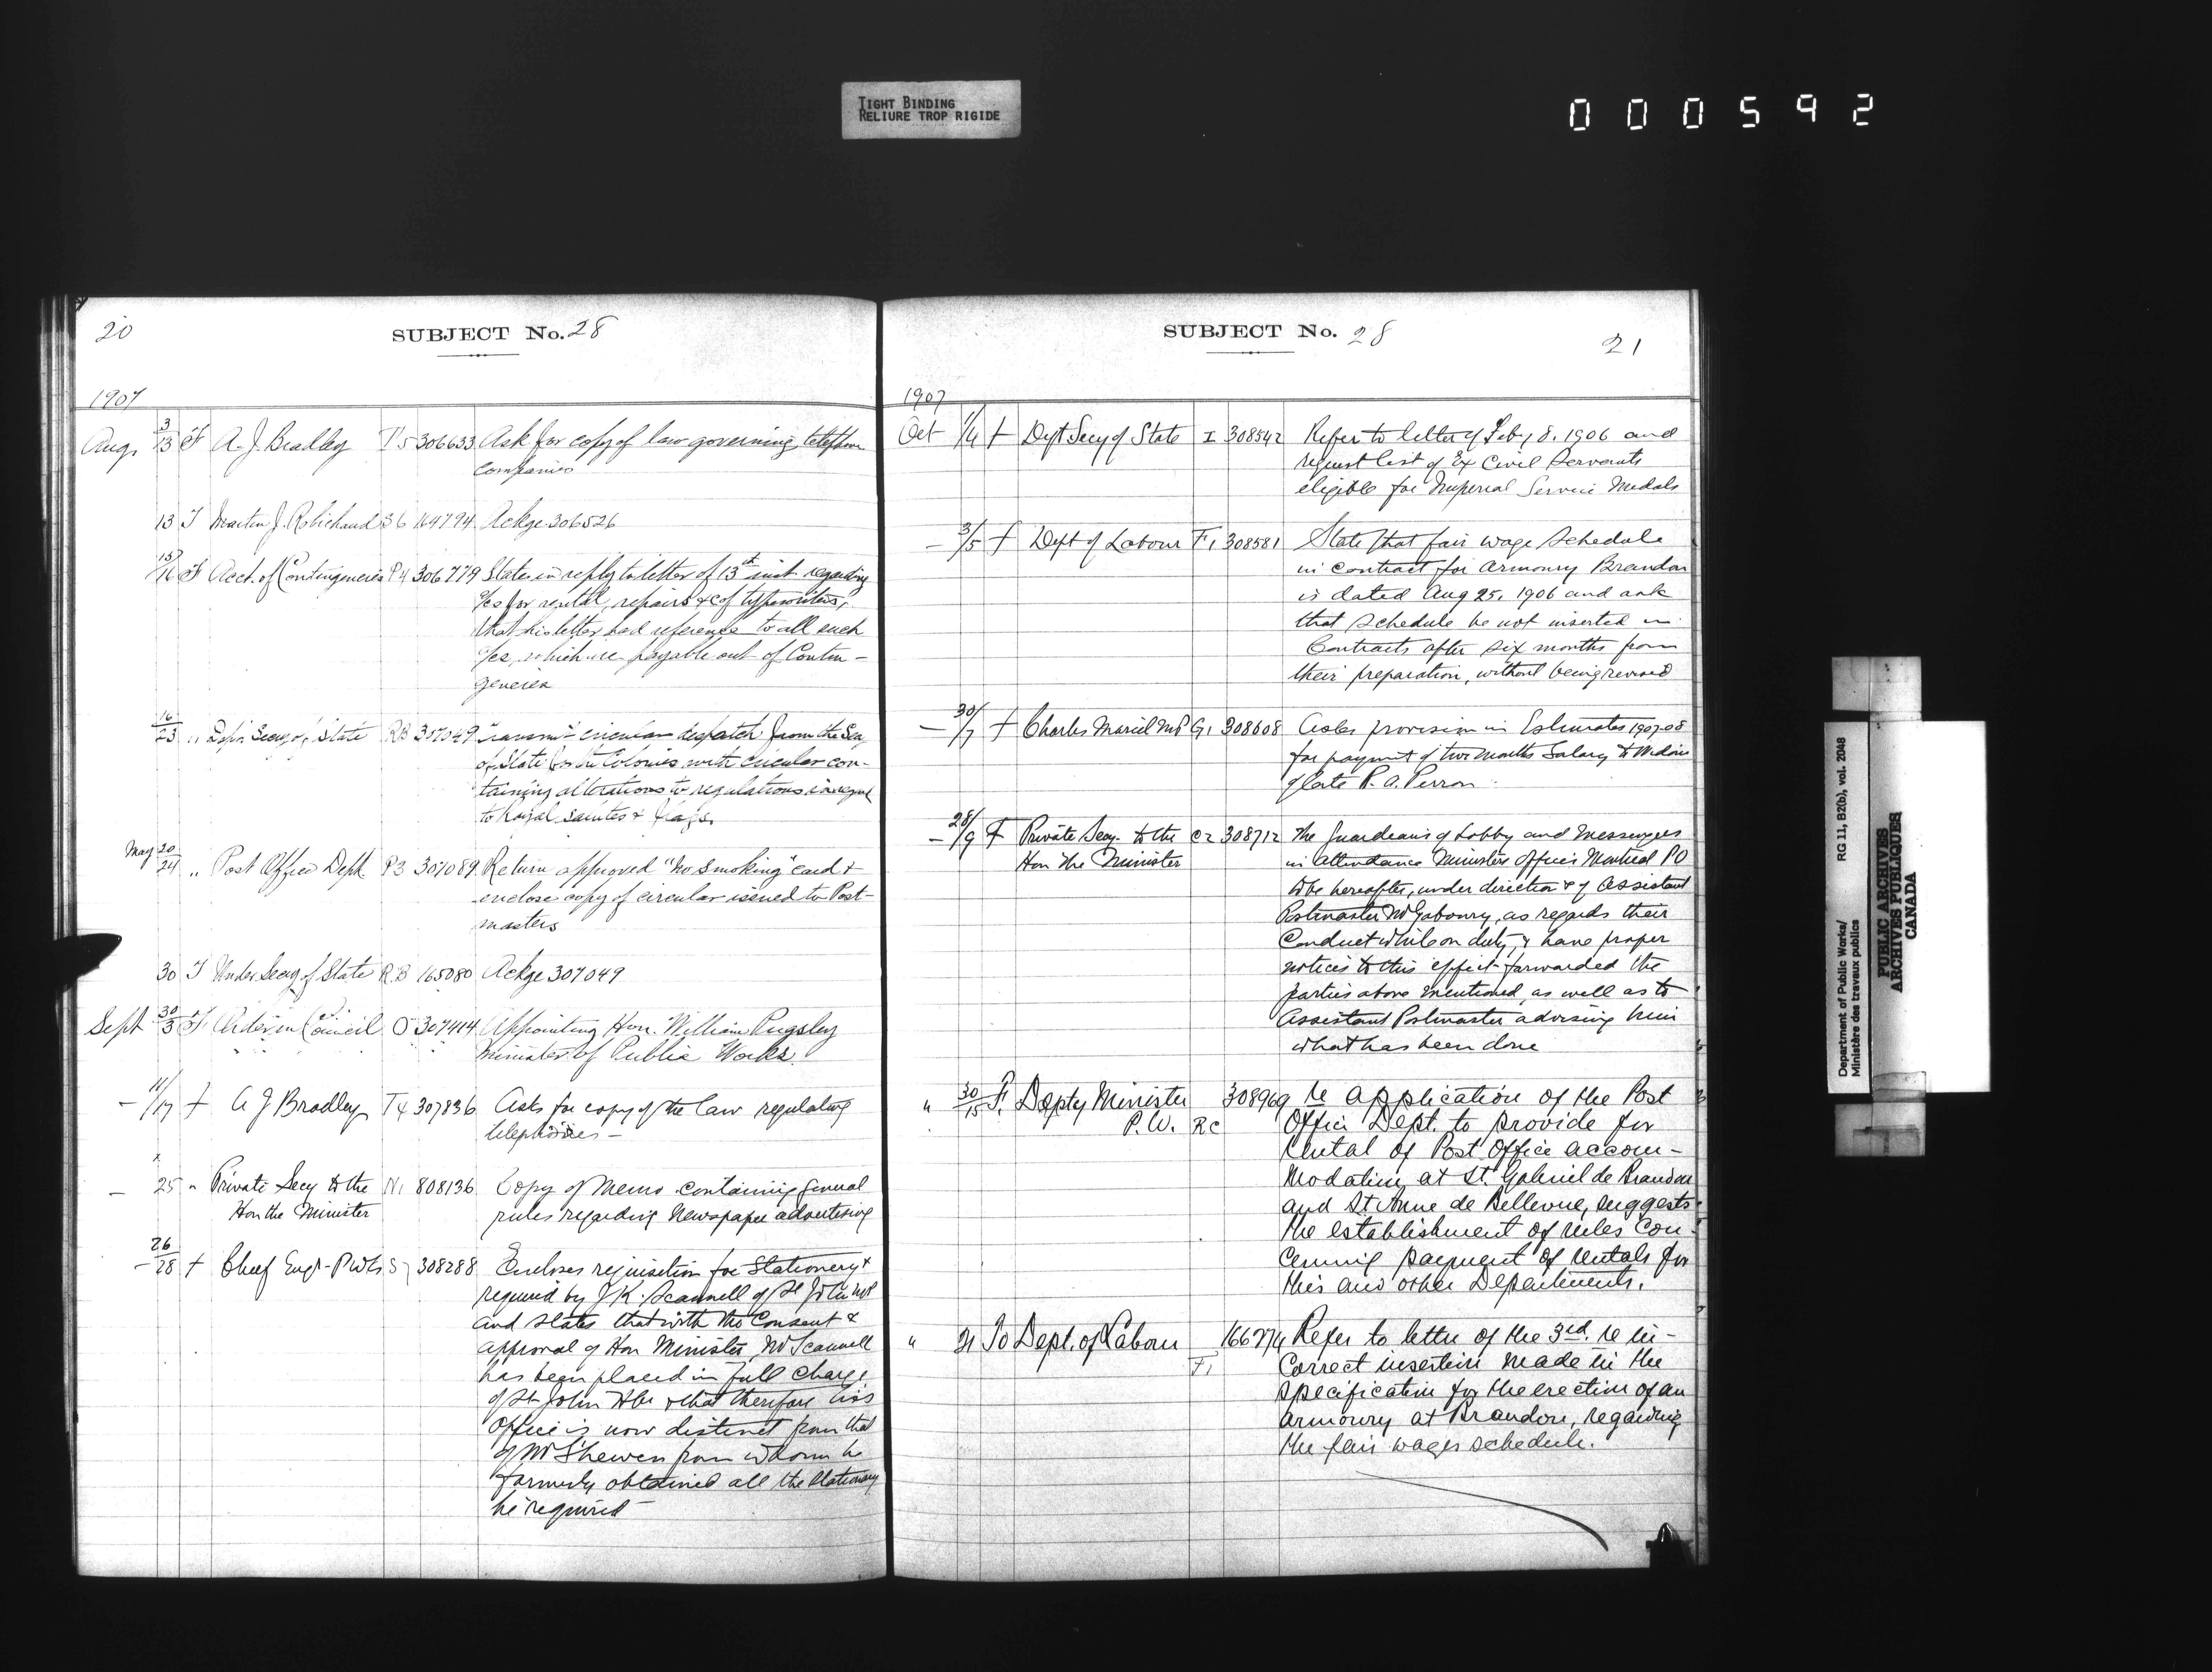 TIGHT BINDING
RELIURE TROP RIGIDE
000592
20
SUBJECT No. 28
1907
Aug. 3/13 F A. J. Bradley T5 306633 Ask for copy of law governing telephone
companies
13 T Martin J. Robichaud S6 164794 Ackge 306526
15/16 F Acct. of Contingencies P4 306779 States in reply to letter of 13th inst regarding
for rental, repairs &c of typewriters,
that his letter had reference to all such
which are payable out of Contin-
gencies
16/23 " Dept. Secy of State RB 307049 Transmit circular despatch from the Secy
of State for the Colonies with circular con-
taining alterations to regulations in regard
to Royal salutes & flags.
May 20/24 " Post Office Dept. P3 307089 Return approved "No Smoking" card &
enclose copy of circular issued to Post-
masters
30 T Under Secy of State R.B 165080 Ackge 307049
Sept 30/3 F Order in Council O 307414 Appointing Hon. William Pugsley
Minister of Public Works.
— 11/17 f A J Bradley T4 307836 Asks for copy of the law regulating
telephones —
— 25 " Private Secy to the N1 808136 Copy of Memo containing general
Hon the Minister rules regarding newspaper advertising
— 26/28 f Chief Engr P Wks S7 308288 Encloses requisition for Stationery
required by J K. Scammell of St John NB
and states that with the Consent &
approval of Hon Minister, Mr Scammell
has been placed in full charge
of St John Hbr & that therefore his
office is now distinct from that
of Mr Shewen from whom he
formerly obtained all the stationery
he required —
SUBJECT No. 28
21
1907
Oct 1/4 f Dept Secy of State I 308542 Refer to letter of Feby 8. 1906 and
request list of Ex Civil Servants
eligible for Imperial Service Medals
— 3/5 f Dept of Labour F1 308581 State that fair wage schedule
in contract for Armoury Brandon
is dated Aug 25, 1906 and ask
that schedule be not inserted in
Contracts after six months from
their preparation, without being revised
— 30/7 f Charles Marcil MP G1 308608 Asks provision in Estimates 1907-08
for payment of two months Salary to Widow
of late P. A. Perron
— 28/9 F Private Secy. to the C2 308712 The Guardians of Lobby and Messengers
Hon the Minister in attendance Ministers offices Montreal PO
to be hereafter, under direction of Assistant
Postmaster Mr Gaboury, as regards their
Conduct while on duty, & have proper
notices to this effect forwarded the
parties above mentioned, as well as to
Assistant Postmaster advising him
what has been done
" 30/15 F. Depty Minister 308969 re application of the Post
P. W. RC Office Dept. to provide for
rental of Post Office accom-
modation at St. Gabriel de Brandon
and St Anne de Bellevue, suggests
the establishment of rules con-
cerning payment of rentals for
this and other Departments.
" 21 To Dept. of Labour 166274 Refer to letter of the 3rd. re in-
F1 correct insertion made in the
specification for the erection of an
armoury at Brandon, regarding
the fair wages schedule.
Department of Public Works/
Ministère des travaux publics
RG 11, B2(b), vol. 2048
PUBLIC ARCHIVES
ARCHIVES PUBLIQUES
CANADA